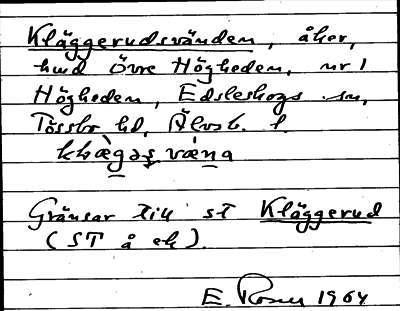 Kläggerudsvänden, åker,
hmd Övre Högheden, nr 1
Högheden, Edsleskogs sn,
Tössbo hd, Älvsb. l.
klægəs væna
Gränsar till st Kläggerud
(ST å ek).
E. Rosén 1964